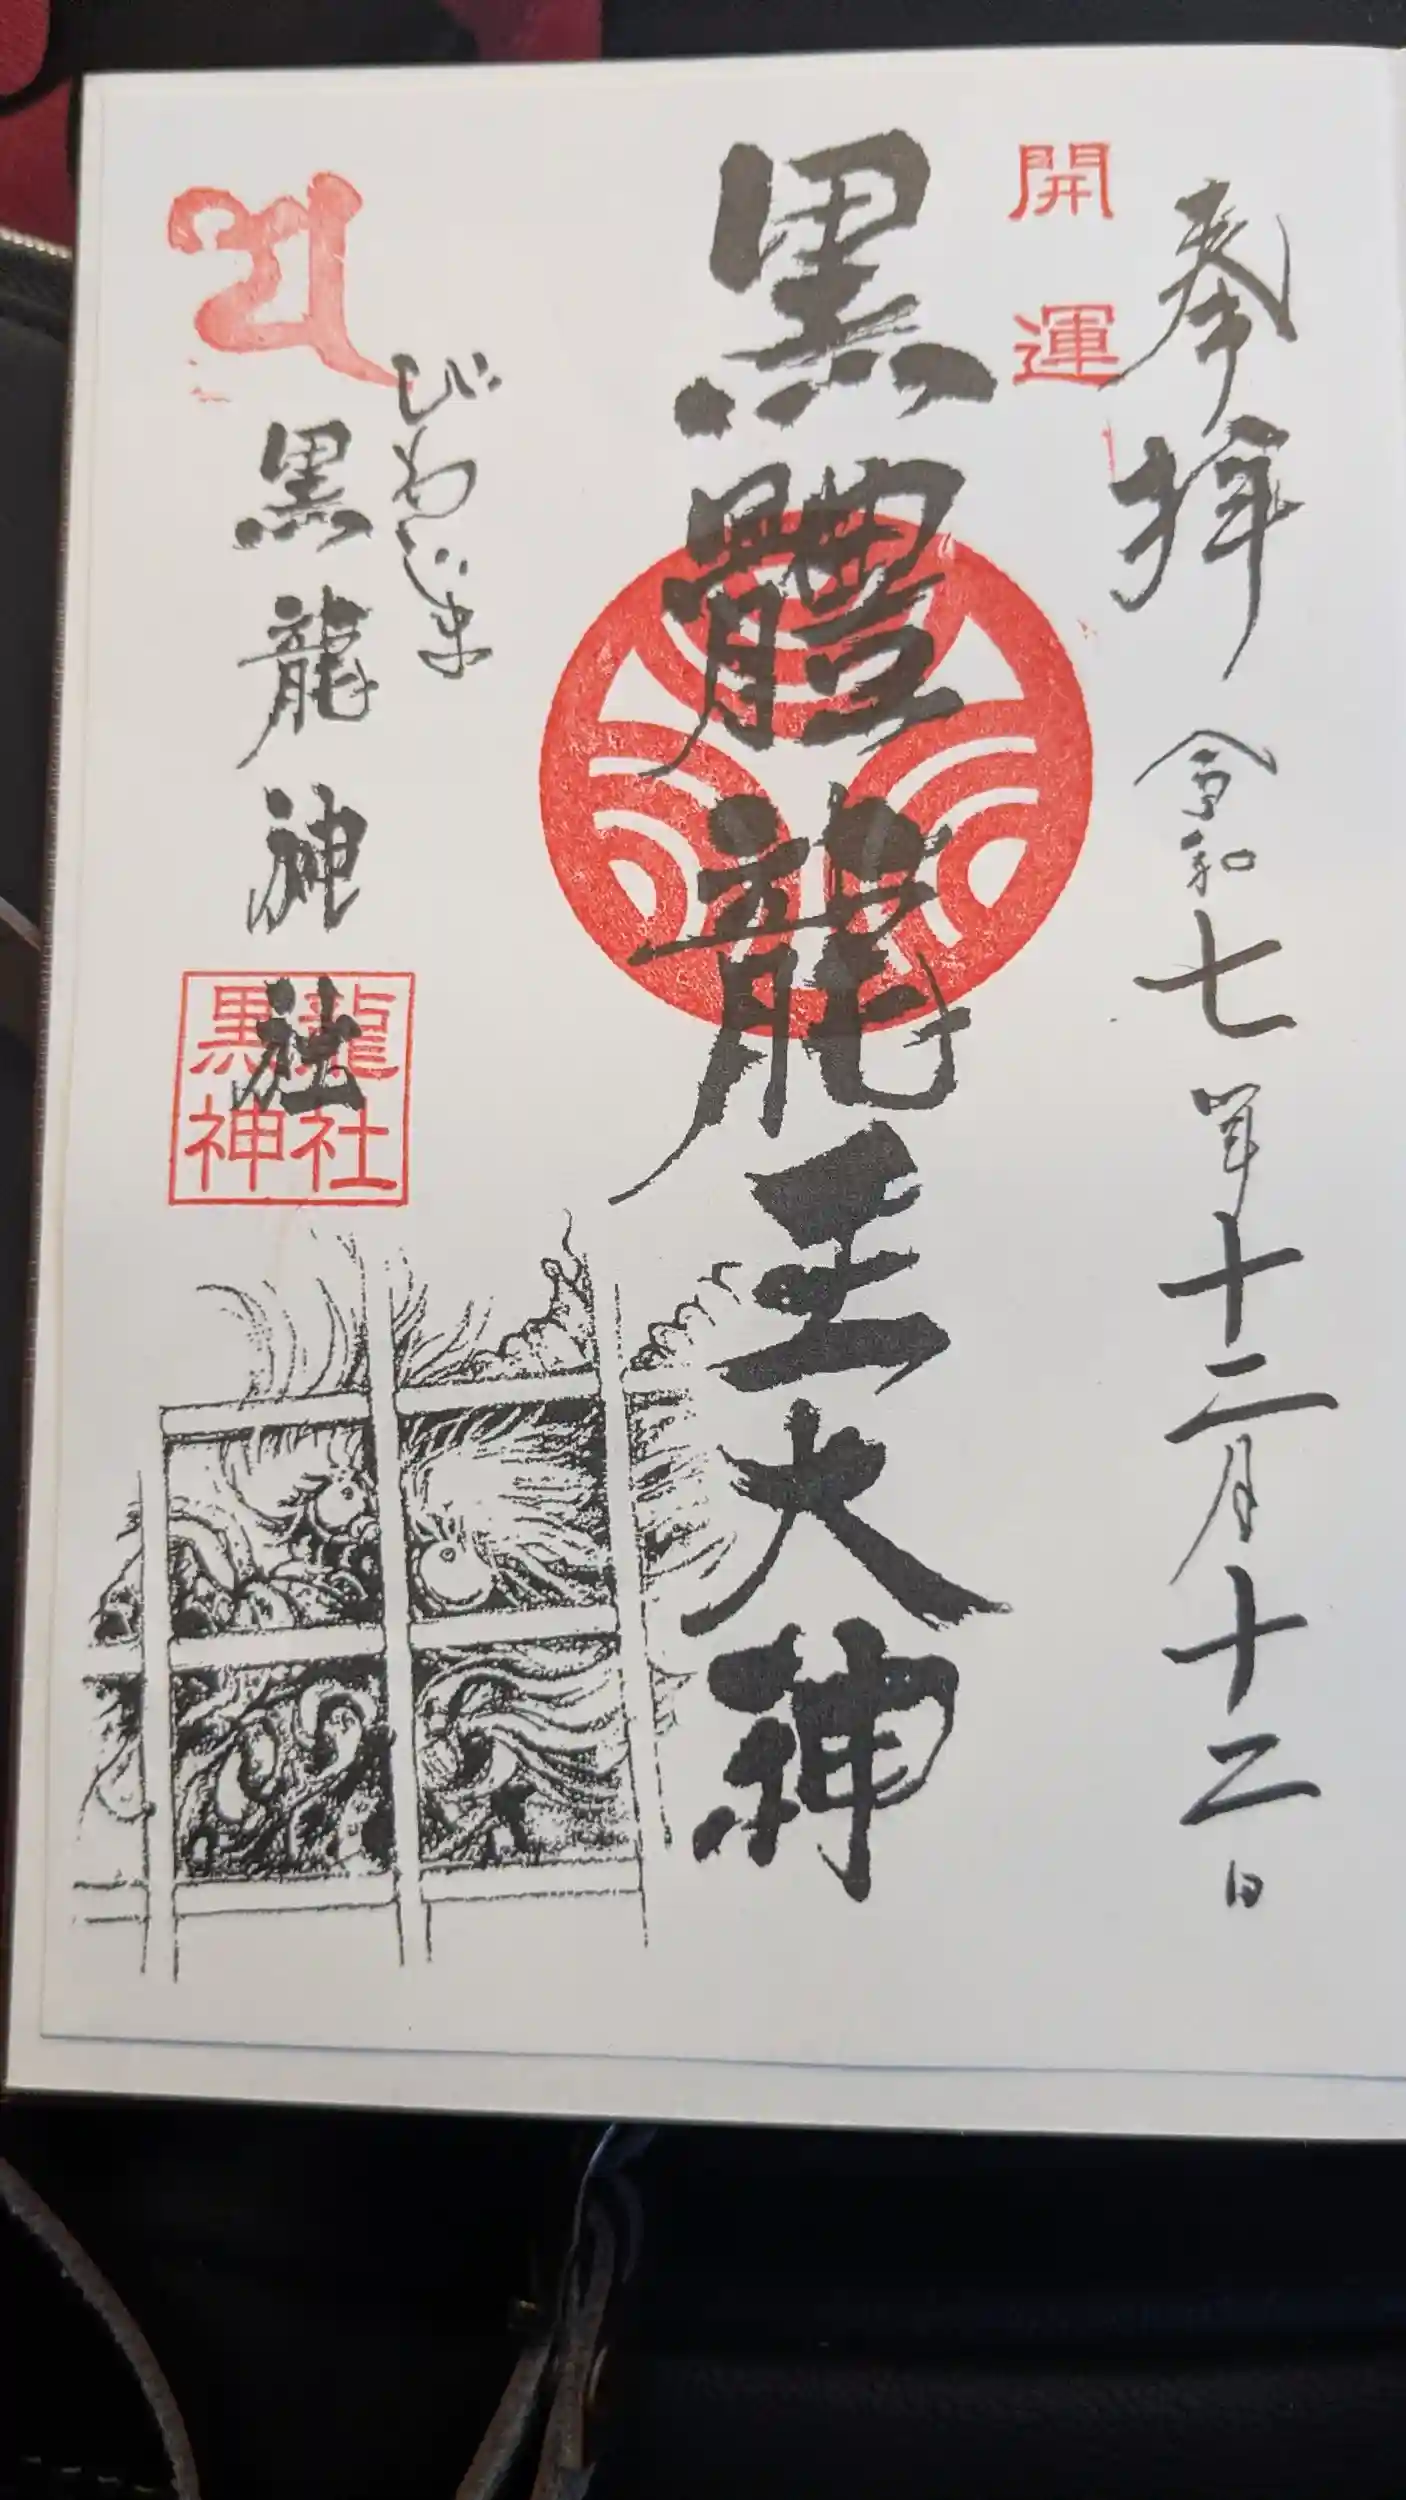 奉拝 令和七年十二月十二日
開運
黒體龍王大神
びわじま
黒龍神社
黒龍神社